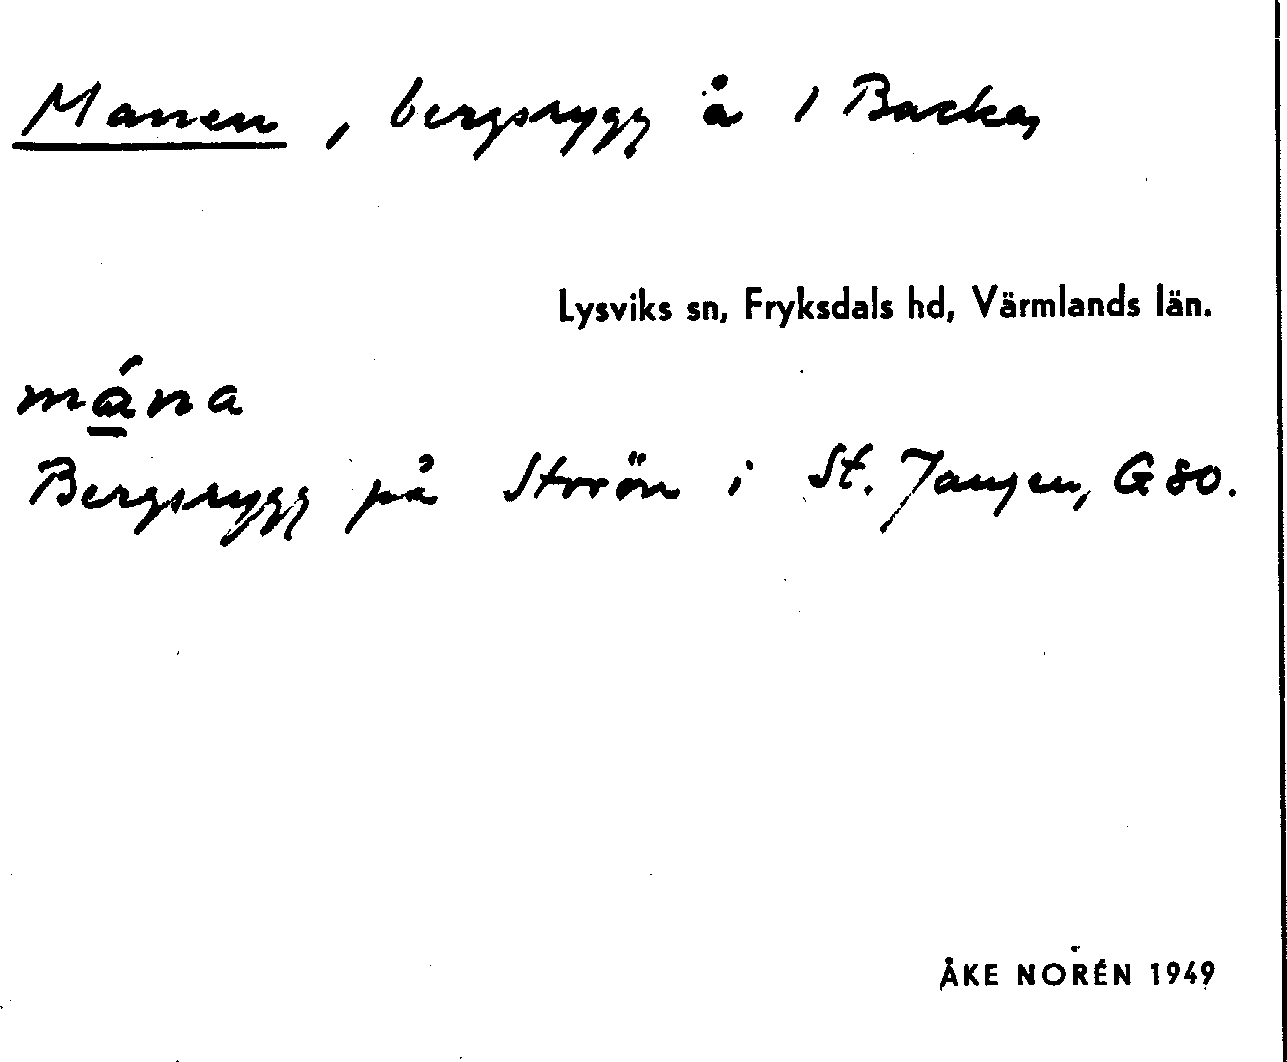 Manen, bergsrygg å 1 Backa,
Lysviks sn, Fryksdals hd, Värmlands län.
mána
Bergsrygg på Storön i St. Jangen, G 80.
ÅKE NORÉN 1949